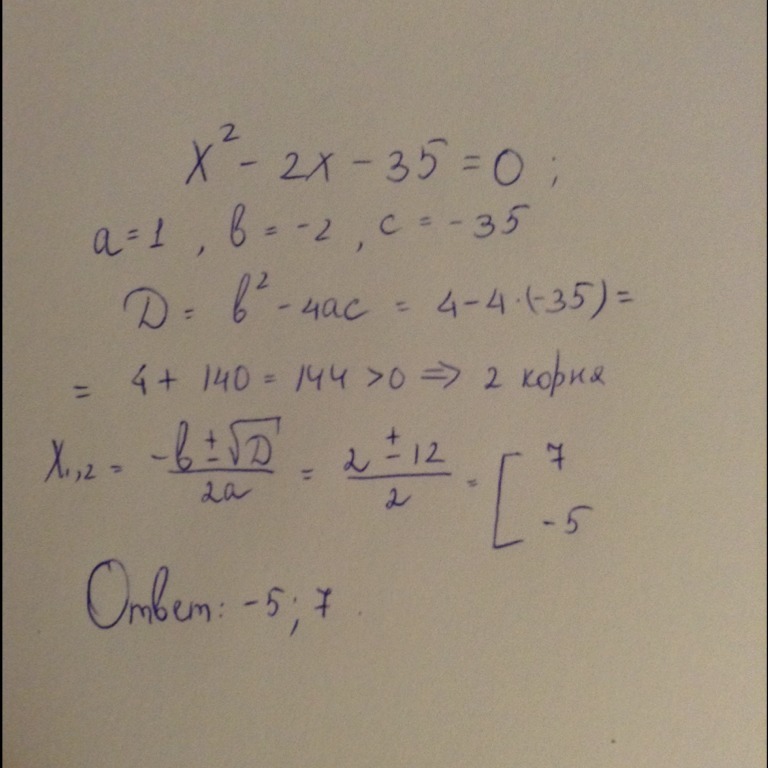 x² - 2x - 35 = 0 ;
a = 1 , b = -2 , c = -35
D = b² - 4ac = 4 - 4·(-35) =
= 4 + 140 = 144 > 0 ⇒ 2 корня
x₁,₂ = (-b ± √D)/(2a) = (2 ± 12)/2 = [ 7 -5
Ответ: -5; 7.